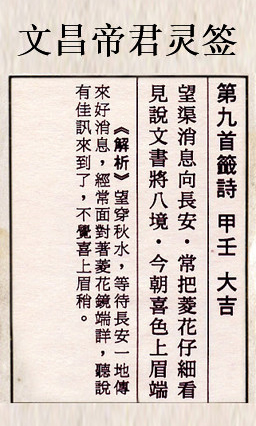 文昌帝君灵签
第九首籤詩 甲壬 大吉
望渠消息向長安·常把菱花仔細看
見說文書將八境·今朝喜色上眉端
《解析》望穿秋水，等待長安一地傳
來好消息，經常面對著菱花鏡端詳，聽說
有佳訊來到了，不覺喜上眉稍。